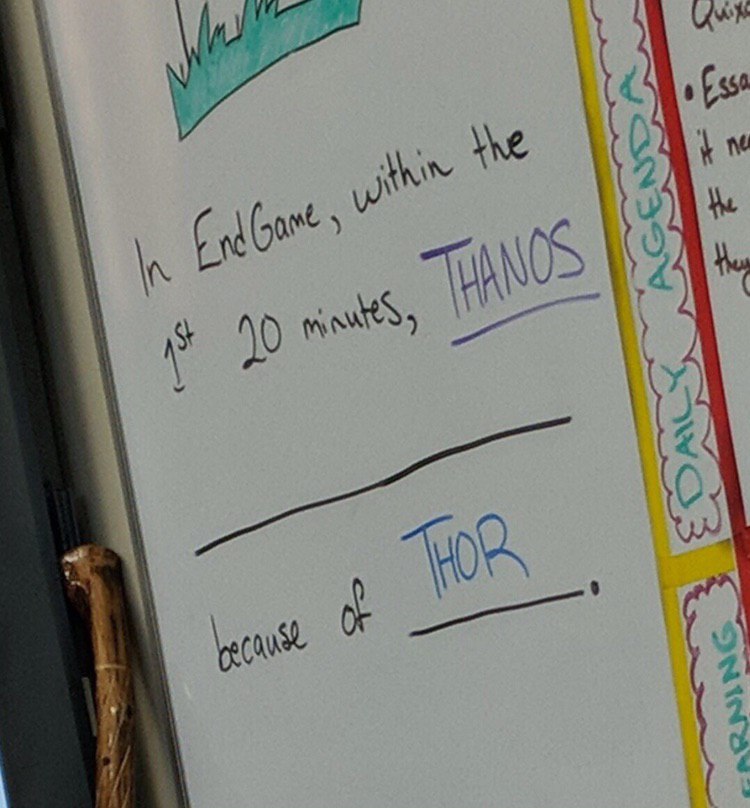 In EndGame, within the
1st 20 minutes, THANOS
because of THOR.
DAILY AGENDA
• Essa
it
the
they